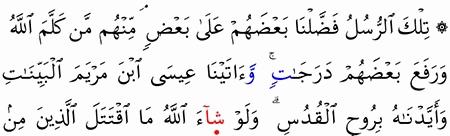 ۞ تِلۡكَ ٱلرُّسُلُ فَضَّلۡنَا بَعۡضَهُمۡ عَلَىٰ بَعۡضٖۘ مِّنۡهُم مَّن كَلَّمَ ٱللَّهُۖ
وَرَفَعَ بَعۡضَهُمۡ دَرَجَٰتٖۚ وَءَاتَيۡنَا عِيسَى ٱبۡنَ مَرۡيَمَ ٱلۡبَيِّنَٰتِ
وَأَيَّدۡنَٰهُ بِرُوحِ ٱلۡقُدُسِۗ وَلَوۡ شَآءَ ٱللَّهُ مَا ٱقۡتَتَلَ ٱلَّذِينَ مِنۢ